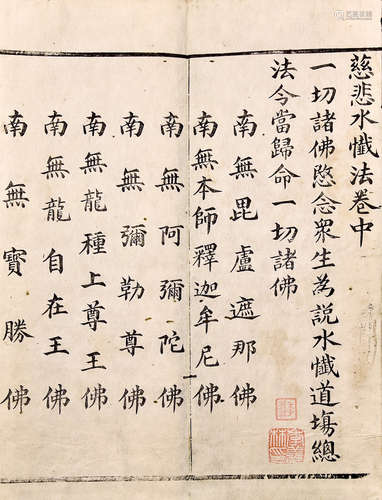 慈悲水懴法卷中
一切諸佛愍念衆生為說水懴道塲總
法今當歸命一切諸佛
南無毘盧遮那佛
南無本師釋迦牟尼佛
南無阿彌陀佛
南無彌勒尊佛
南無龍種上尊王佛
南無龍自在王佛
南無寶勝佛